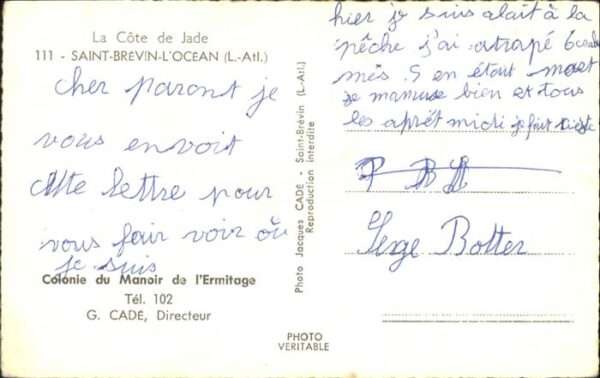 La Côte de Jade
111 - SAINT-BREVIN-L'OCEAN (L.-Atl.)
cher paront je
vous envoit
cette lettre pour
vous fair voir où
je suis
Colonie du Manoir de l'Ermitage
Tél. 102
G. CADÉ, Directeur
Photo Jacques CADÉ - Saint-Brévin (L.-Atl.)
Reproduction interdite
PHOTO
VERITABLE
hier je suis alait à la
pêche j'ai atrapé 6
mes 5 en étout mort
je mamuse bien et tous
les aprét midi je fait
Serge Botter